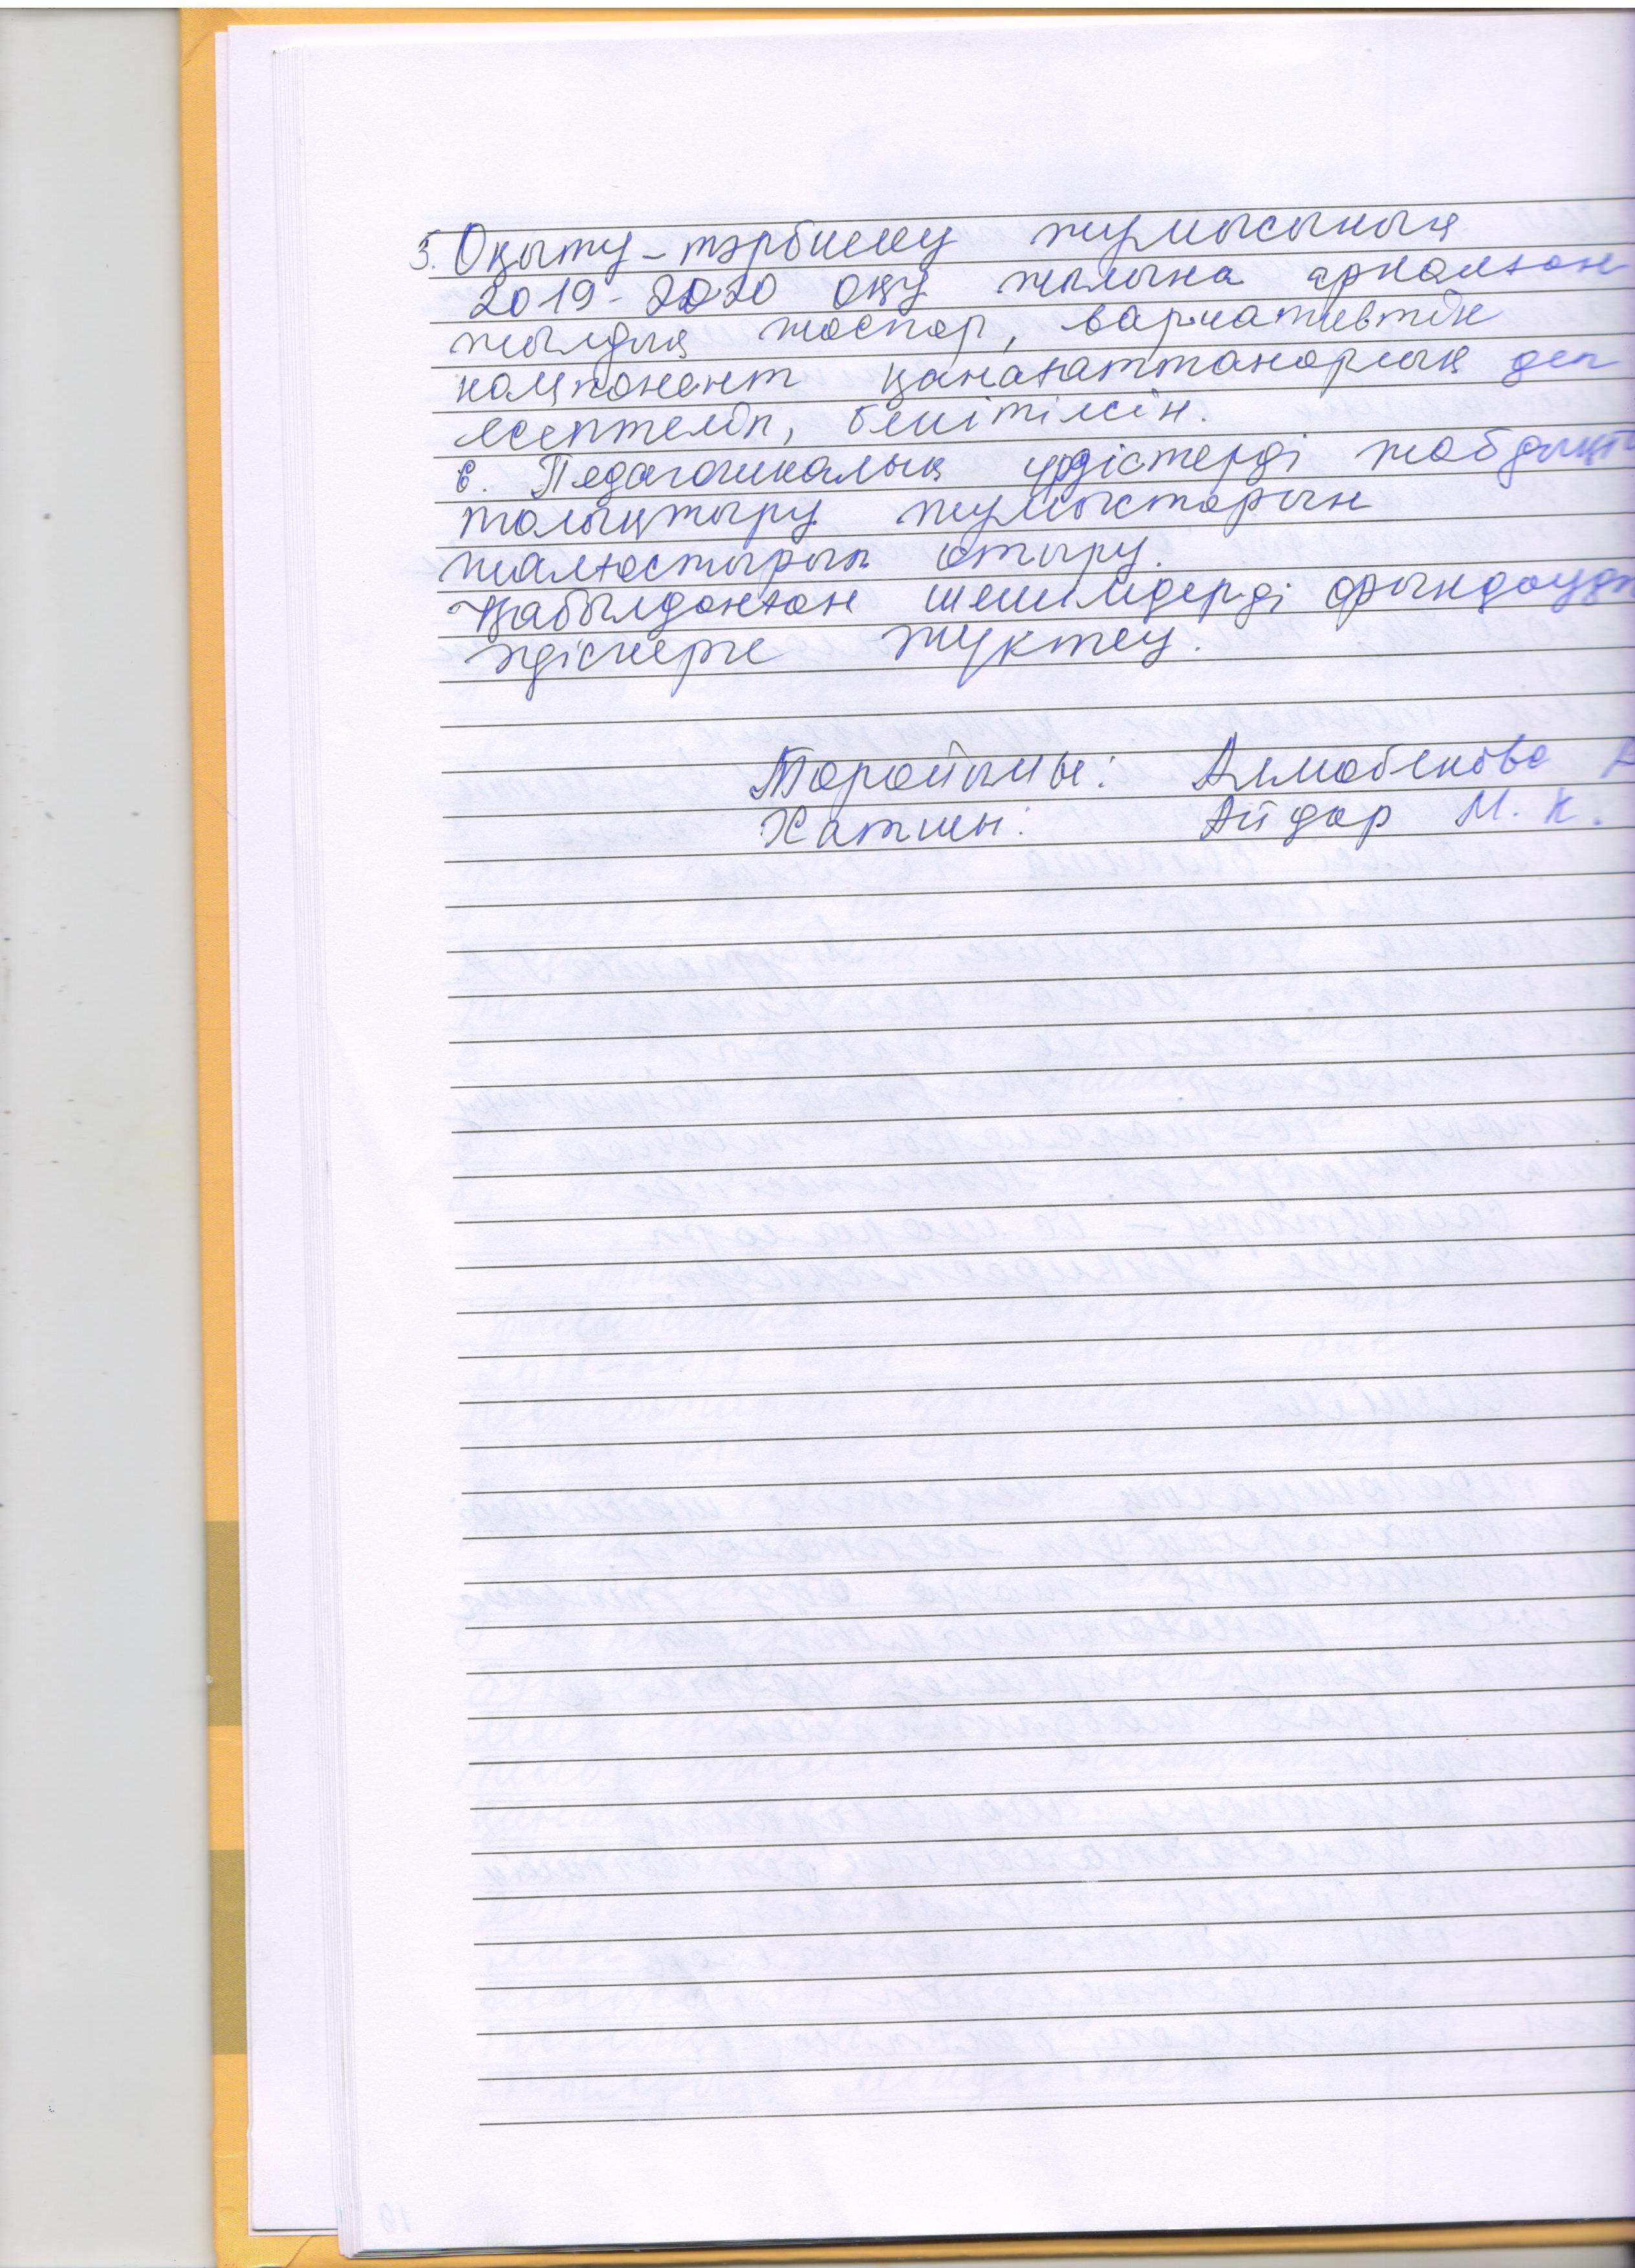 5. Оқыту-тәрбиелеу жұмысының
2019-2020 оқу жылына арналған
жылдық жоспар, вариативтік
компонент қанағаттанарлық деп
есептеліп, бекітілсін.
6. Педагогикалық үрдістерді жабдықт
толықтыру жұмыстарын
жалғастырып отыру.
Қабылданған шешімдерді орындауды
әдіскерге жүктеу.
Төрайымы: Алмабекова А
Хатшы: Айдар М. К.